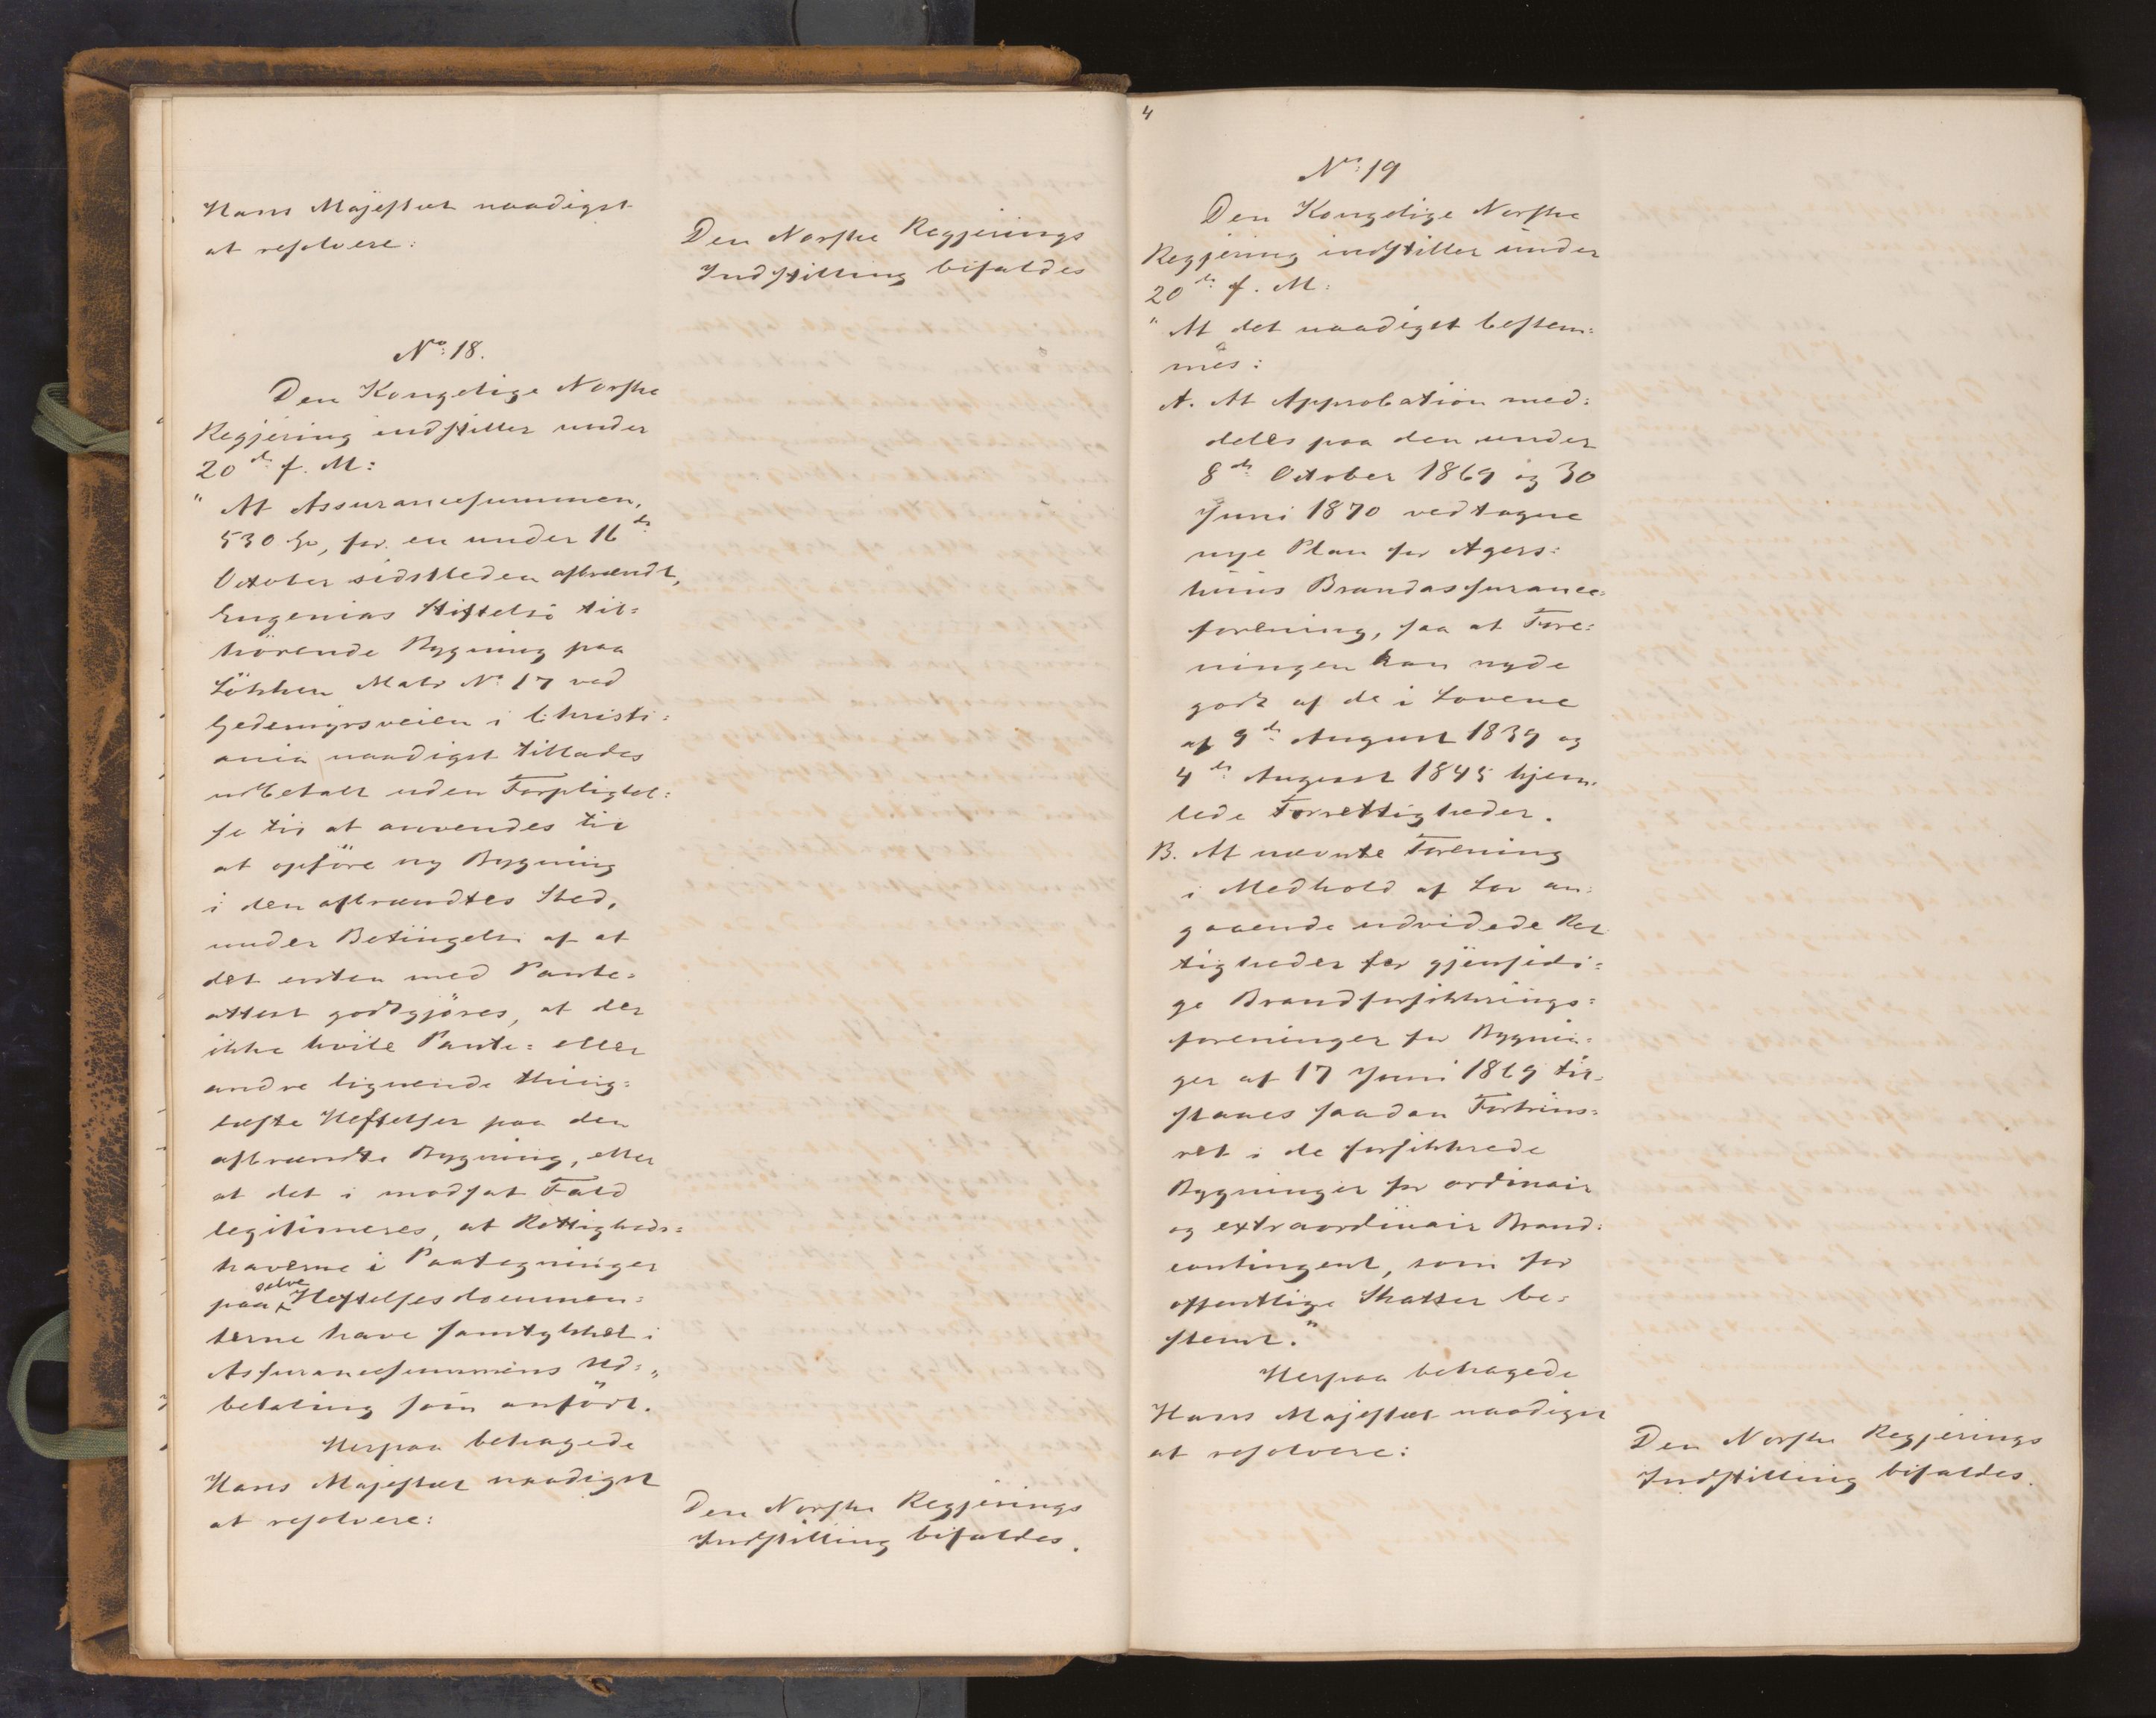 Hans Majestæt naadigst
at resolvere:
Den Norske Regjerings
Indstilling bifaldes
No: 18.
Den Kongelige Norske
Regjering indstiller under
20de f. M:
"At Assurancesummen,
530 Spd, for en under 16de
October sidstleden afbrændt,
Eugenias Stiftelse til=
hörende Bygning paa
Lökken Matr No 17 ved
Gedemyrsveien i Christi=
ania naadigst tillades
udbetalt uden Forpligtel=
se til at anvendes til
at opföre ny Bygning
i den afbrændtes Sted,
under Betingelse af at
det enten med Pante=
attest godtgjöres, at der
ikke hvile Pante= eller
andre lignende thing=
læste Heftelser paa den
afbrændte Bygning, eller
at det i modsat Fald
legitimeres, at Rettigheds=
haverne i Paategninger
paa selve Heftelsesdocumen=
terne have samtykket i
Assurancesummens Ud=
betaling som anfört."
Herpaa behagede
Hans Majestæt naadigst
at resolvere:
Den Norske Regjerings
Indstilling bifaldes.
4
No: 19
Den Kongelige Norske
Regjering indstiller under
20de f. M:
"At det naadigst bestem=
mes:
A. At Approbation med=
deles paa den under
8de October 1869 og 30
Juni 1870 vedtagne
nye Plan for Agers=
huus Brandassurance=
forening, saa at Fore=
ningen kan nyde
godt af de i Lovene
af 9de August 1839 og
4de August 1845 hjem=
lede Forrettigheder.
B. At nævnte Forening
i Medhold af Lov an=
gaaende udvidede Ret
tigheder for gjensidi=
ge Brandforsikkrings=
foreninger for Bygnin=
ger af 17 Juni 1869 til=
staaes saadan Fortrins=
ret i de forsikkrede
Bygninger for ordinair
og extraordinair Brand=
contingent, som for
offentlige Skatter be=
stemt."
Herpaa behagede
Hans Majestæt naadigst
at resolvere:
Den Norske Regjerings
Indstilling bifaldes.